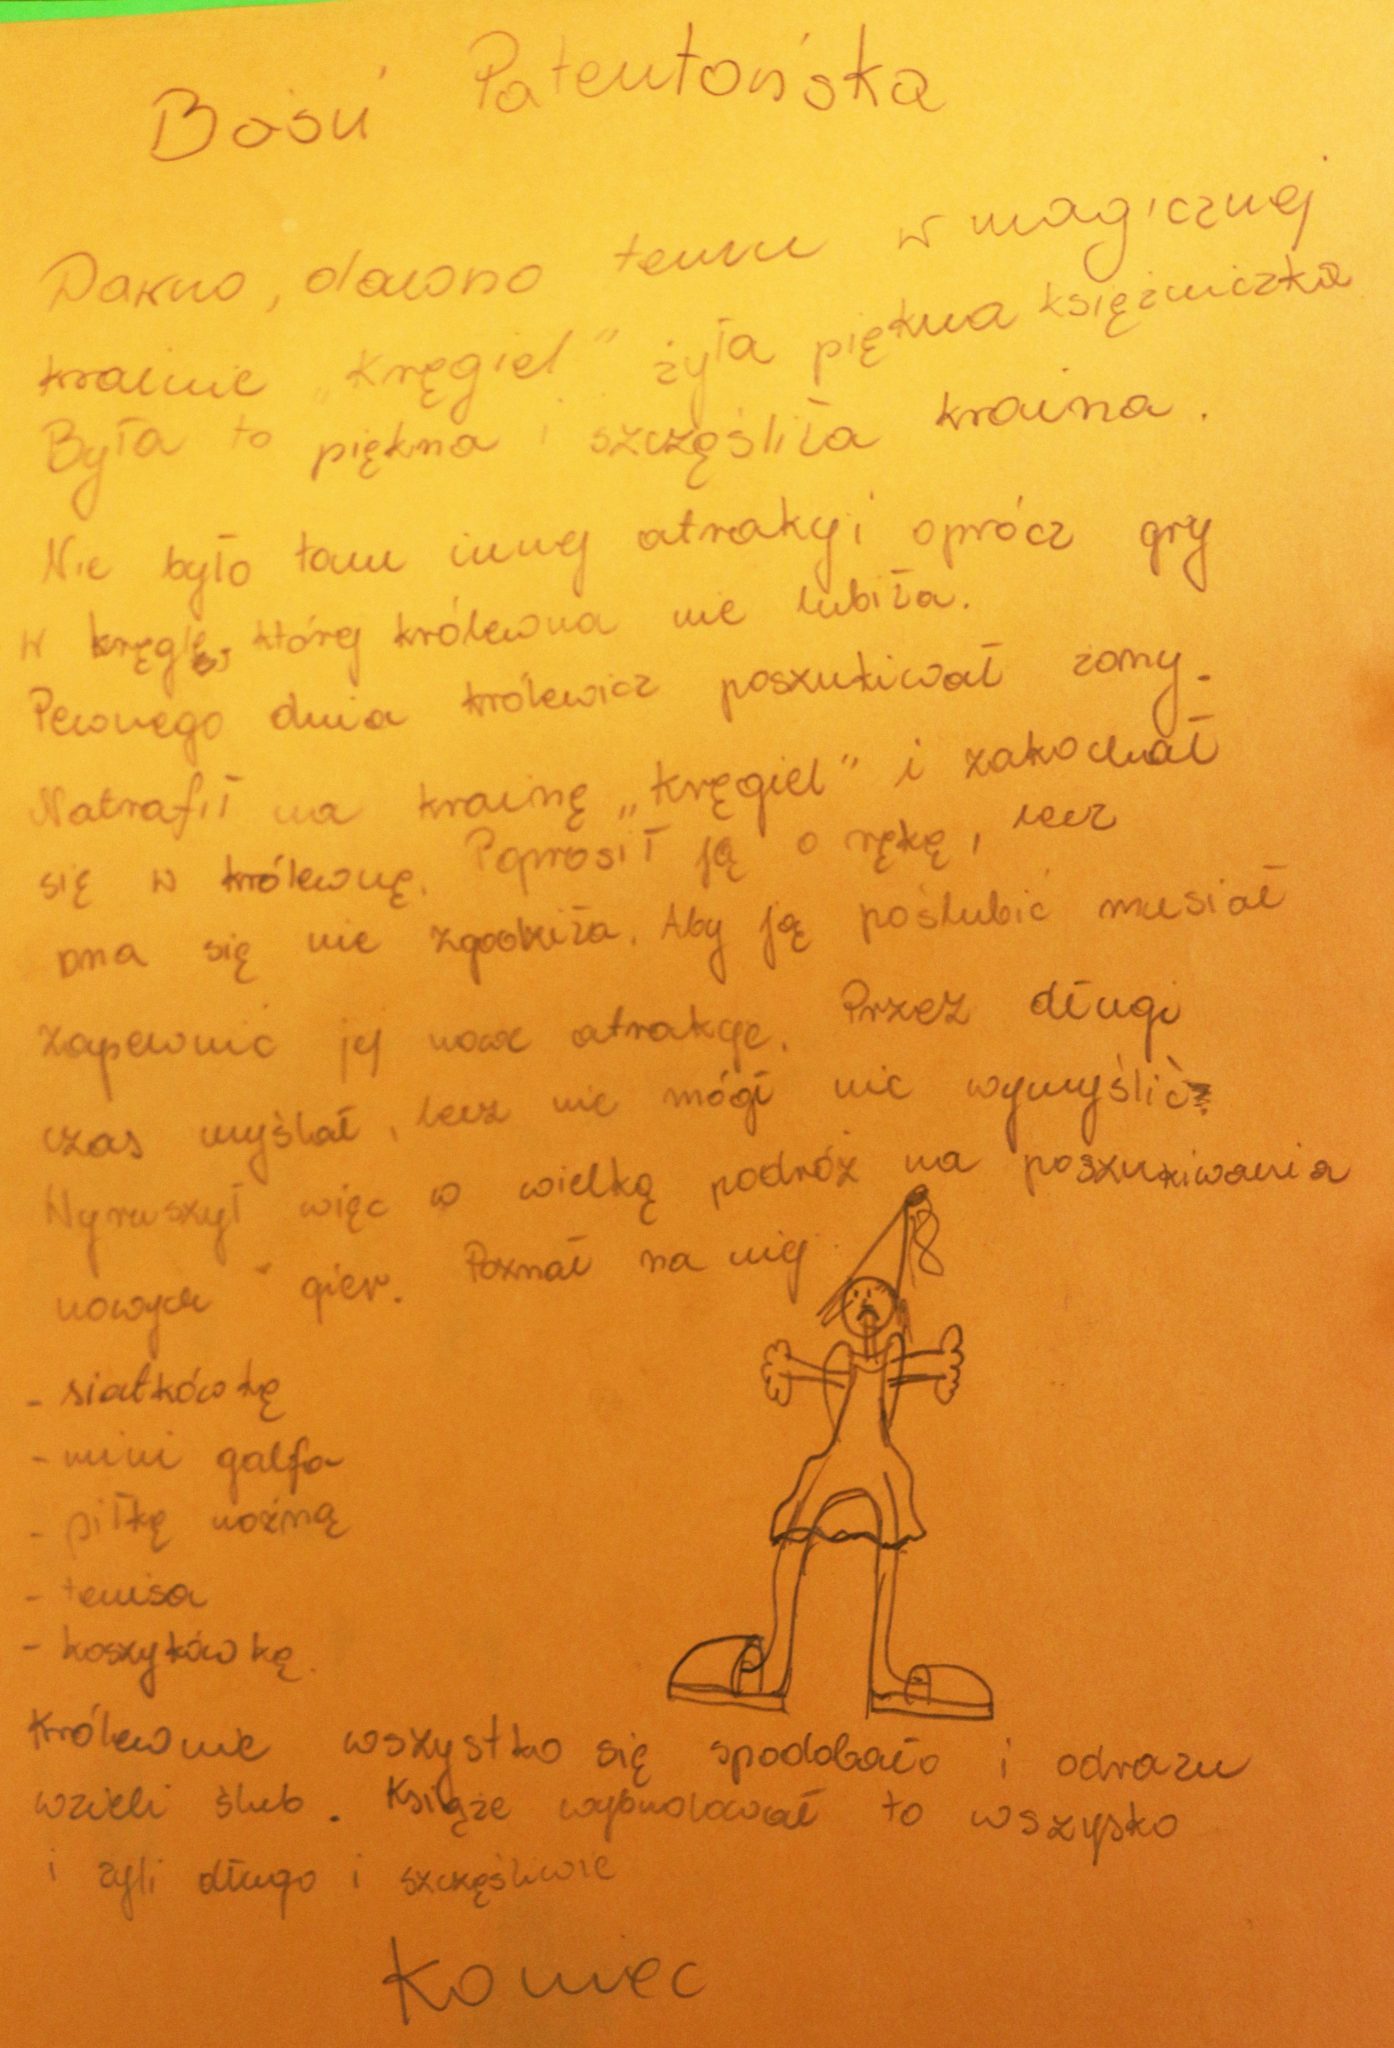 Baśń Patentońska
Dawno, dawno temu w magicznej
krainie „Kręgiel" żyła piękna księżniczka
Była to piękna i szczęśliła kraina.
Nie było tam innej atrakyji oprócz gry
w kręgle, której królewna nie lubiła.
Pewnego dnia królewicz poszukiwał żony.
Natrafił na krainę „Kręgiel" i zakochał
się w królewnę. Poprosił ją o rękę, lecz
ona się nie zgodziła. Aby ją poślubić musiał
zapewnić jej nowe atrakcje. Przez długi
czas myślał, lecz nie mógł nic wymyślić
Wyruszył więc w wielką podróż na poszukiwania
nowych gier. Poznał na niej
- siatkówkę
- mini galfa
- piłkę nożną
- tenisa
- koszykówkę.
Królewnie wszystko się spodobało i odrazu
wzieli ślub. Książe wybudował to wszysko
i żyli długo i szczęśliwie
Koniec